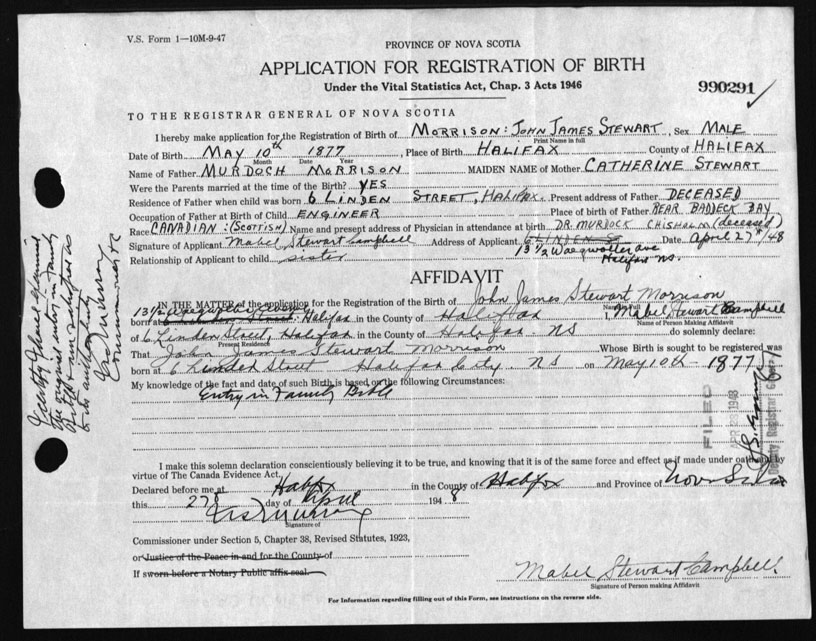 V.S. Form 1—10M-9-47
PROVINCE OF NOVA SCOTIA
APPLICATION FOR REGISTRATION OF BIRTH
Under the Vital Statistics Act, Chap. 3 Acts 1946
990291
TO THE REGISTRAR GENERAL OF NOVA SCOTIA
I hereby make application for the Registration of Birth of MORRISON: JOHN JAMES STEWART, Sex MALE
Print Name in full
Date of Birth MAY 10th 1877, Place of Birth HALIFAX County of HALIFAX
Month Date Year
Name of Father MURDOCH MORRISON MAIDEN NAME of Mother CATHERINE STEWART
Were the Parents married at the time of the Birth? YES
Residence of Father when child was born 6 LINDEN STREET, HALIFAX. Present address of Father DECEASED
Occupation of Father at Birth of Child ENGINEER Place of birth of Father REAR BADDECK BAY
Race CANADIAN: (SCOTTISH) Name and present address of Physician in attendance at birth DR. MURDOCK CHISHOLM (deceased)
Signature of Applicant Mabel Stewart Campbell Address of Applicant 6 LINDEN ST Date April 27th/48
13½ Waegwoltic ave
Relationship of Applicant to child sister Halifax ns.
AFFIDAVIT
IN THE MATTER of the application for the Registration of the Birth of John James Stewart Morrison
born at Halifax in the County of Halifax I, Mabel Stewart Campbell
Name of Person Making Affidavit
of 6 Linden Street, Halifax in the County of Halifax - NS do solemnly declare:
Present Residence
That John James Stewart Morrison Whose Birth is sought to be registered was
born at 6 Linden Street Halifax City. NS on May 10th - 1877
My knowledge of the fact and date of such Birth is based on the following Circumstances:
Entry in Family Bible
FILED
1948
Deputy Registrar General
I make this solemn declaration conscientiously believing it to be true, and knowing that it is of the same force and effect as if made under oath and by
virtue of The Canada Evidence Act.
Declared before me at Halifax in the County of Halifax and Province of Nova Scotia
this 27 day of April 1948
Signature of
Commissioner under Section 5, Chapter 38, Revised Statutes, 1923,
or Justice of the Peace in and for the County of
If sworn before a Notary Public affix seal.
Mabel Stewart Campbell.
Signature of Person making Affidavit
For Information regarding filling out of this Form, see instructions on the reverse side.